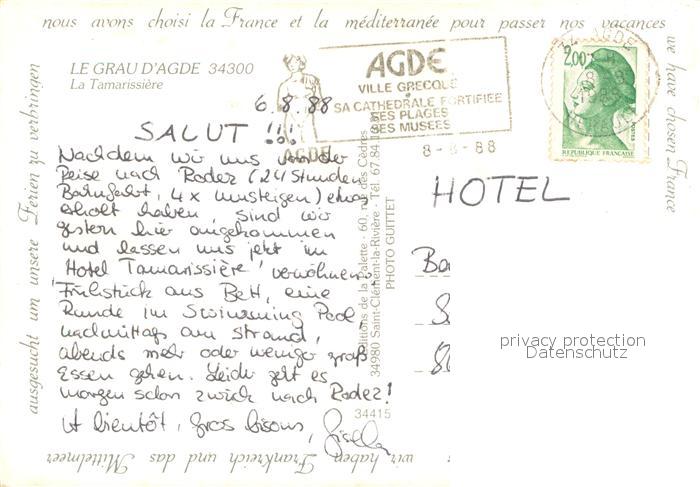 nous avons choisi la France et la méditerranée pour passer nos vacances
we have chosen France
wir haben Frankreich und das Mittelmeer
ausgesucht um unsere Ferien zu verbringen
LE GRAU D'AGDE 34300
La Tamarissière
AGDE
AGDE
VILLE GRECQUE
SA CATHEDRALE FORTIFIEE
SES PLAGES
SES MUSEES
8-8-88
2,00
REPUBLIQUE FRANÇAISE
6.8.88
SALUT !!!
Nachdem wir uns von der
Reise nach Rodez (24 Stunden
Bahnfahrt, 4x umsteigen) etwas
erholt haben, sind wir
gestern hier angekommen
und lassen uns jetzt im
'Hotel Tamarissière' verwöhnen:
Frühstück ans Bett, eine
Runde im Swimming Pool
nachmittags am Strand,
abends mehr oder weniger groß
Essen gehen. Leider geht es
morgen schon zurück nach Rodez!
A bientôt, gros bisous,
Gisella
Editions de la Palette - 60, rue des Cèdres
34980 Saint-Clément-la-Rivière - Tél. 67.84
PHOTO GUITTET
34415
HOTEL
privacy protection
Datenschutz